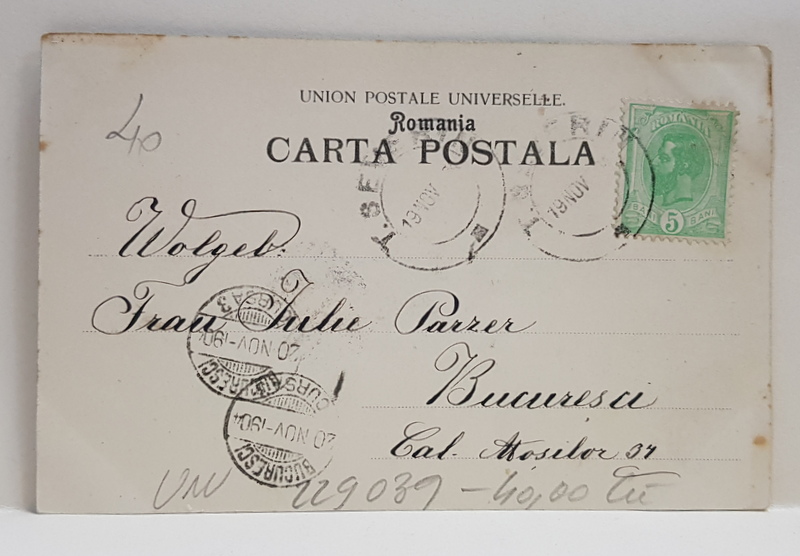 40
UNION POSTALE UNIVERSELLE.
Romania
CARTA POSTALA
ROMANIA
BANI 5 BANI
T. SEVERIN
19 NOV
19 NOV
Wolgeb.
Frau Julie Parzer
Bucuresci
Cal. Mosilor 37
BUCURESCI
20 NOV-190
BUCURESCI
20 NOV-190
229039 - 40,00